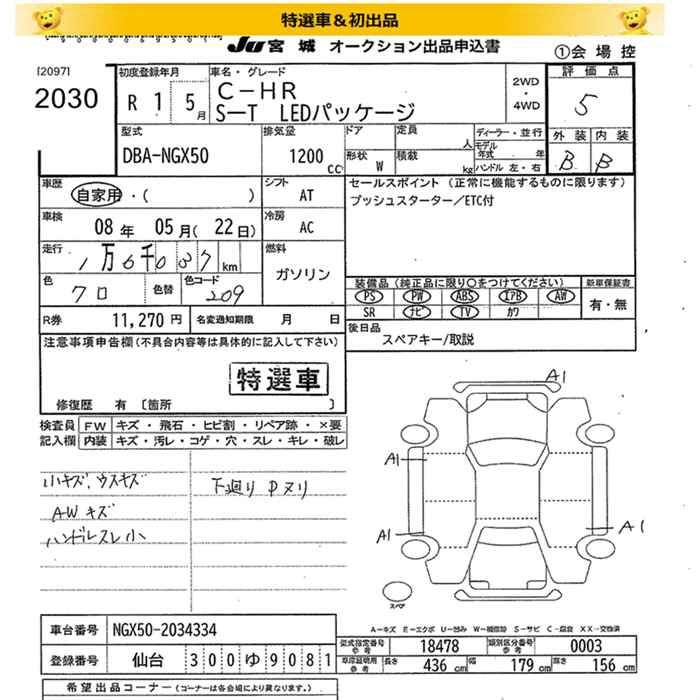 特選車＆初出品
JU 宮城 オークション出品申込書
①会場控
[2097]
2030
初度登録年月
R 1 5月
車名・グレード
C−HR
S−T LEDパッケージ
2WD・4WD
評価点
5
外装 内装
B B
型式
DBA-NGX50
排気量
1200cc
ドア
定員 人
形状 W
積載 kg
ディーラー・並行
モデル年式 年
ハンドル 左・右
車歴
自家用・( )
シフト
AT
車検
08年 05月(22日)
冷房
AC
走行
1万6千037km
燃料
ガソリン
色
クロ
色替
色コード
209
R券 11,270円
名変通知期限 月 日
セールスポイント (正常に機能するものに限ります)
プッシュスターター/ETC付
装備品(純正品に限り○をつけてください)
PS PW ABS エアB AW
SR ナビ TV カワ
新車保証書
有・無
後日品
スペアキー/取説
注意事項申告欄(不具合内容等は具体的に記入して下さい)
特選車
修復歴 有 〔箇所 〕
検査員記入欄
FW キズ・飛石・ヒビ割・リペア跡・×要
内装 キズ・汚レ・コゲ・穴・スレ・キレ・破レ
小キズ、ウスキズ
AWキズ
ハンドルスレ小
下廻り Pヌリ
A1
A1
A1
A1
スペア
A−キズ E−エクボ U−凹み W−補修跡 S−サビ C−腐食 XX−交換済
車台番号 NGX50-2034334
登録番号 仙台 300ゆ9081
型式指定番号 参考 18478
類別区分番号 参考 0003
車庫証明用 参考
長さ 436cm 幅 179cm 高さ 156cm
希望出品コーナー(コーナーは各会場により異なります。)